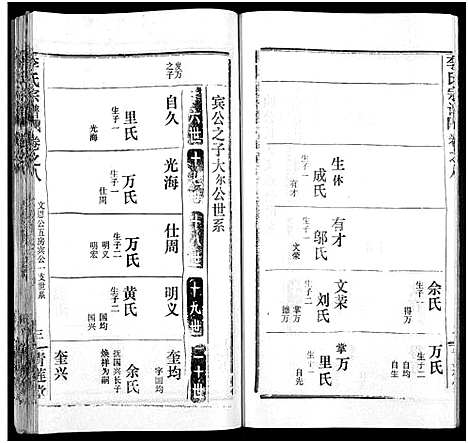 李氏宗譜
卷之八
生休
成氏
生子一
有才
有才
邬氏
生子一
文荣
文荣
刘氏
生子二
掌万
德万
余氏
生子一
得万
掌万
里氏
生子一
自先
万氏
生子二
自
自久
李氏宗譜
卷之八
发万
之子
宾公之子大尔公世系
十六世
十七世
十八世
十九世
二十世
自久
里氏
生子一
光海
光海
万氏
生子一
仕周
仕周
万氏
生子二
明义
明宏
明义
黄氏
生子二
国均
国兴
奎均
字国均
余氏
抚国兴长子
焕祥为嗣
奎兴
文
公五房宾公一支世系
三
青莲堂